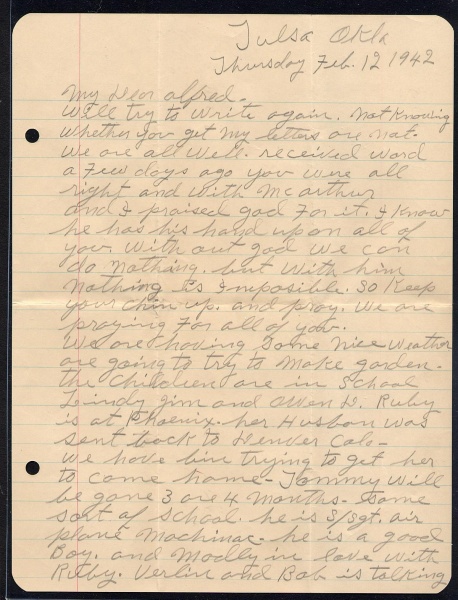 Tulsa Okla
Thursday Feb. 12 1942
My Dear Alfred.
Will try to write again. Not Knowing
Whether you get my letters are not.
We are all well. received word
a Few days ago you were all
right and with McArthur
and I praised god For it. I Know
he has his hand upon all of
you. With out god we can
do nothing. but With him
nothing is imposible. So Keep
your chin up. and pray. We are
praying For all of you.
We are having some nice weather
are going to try to make garden.
the children are in School
Lindy Jim and Owen D. Ruby
is at Phoenix. her Husban was
sent back to Denver Colo-
We have bin trying to get her
to come home- Tommy will
be gone 3 are 4 months- some
sort of School. he is S/Sgt. air
plane Machinac- he is a good
Boy. and Modly in love with
Ruby. Verlin and Bob is talking